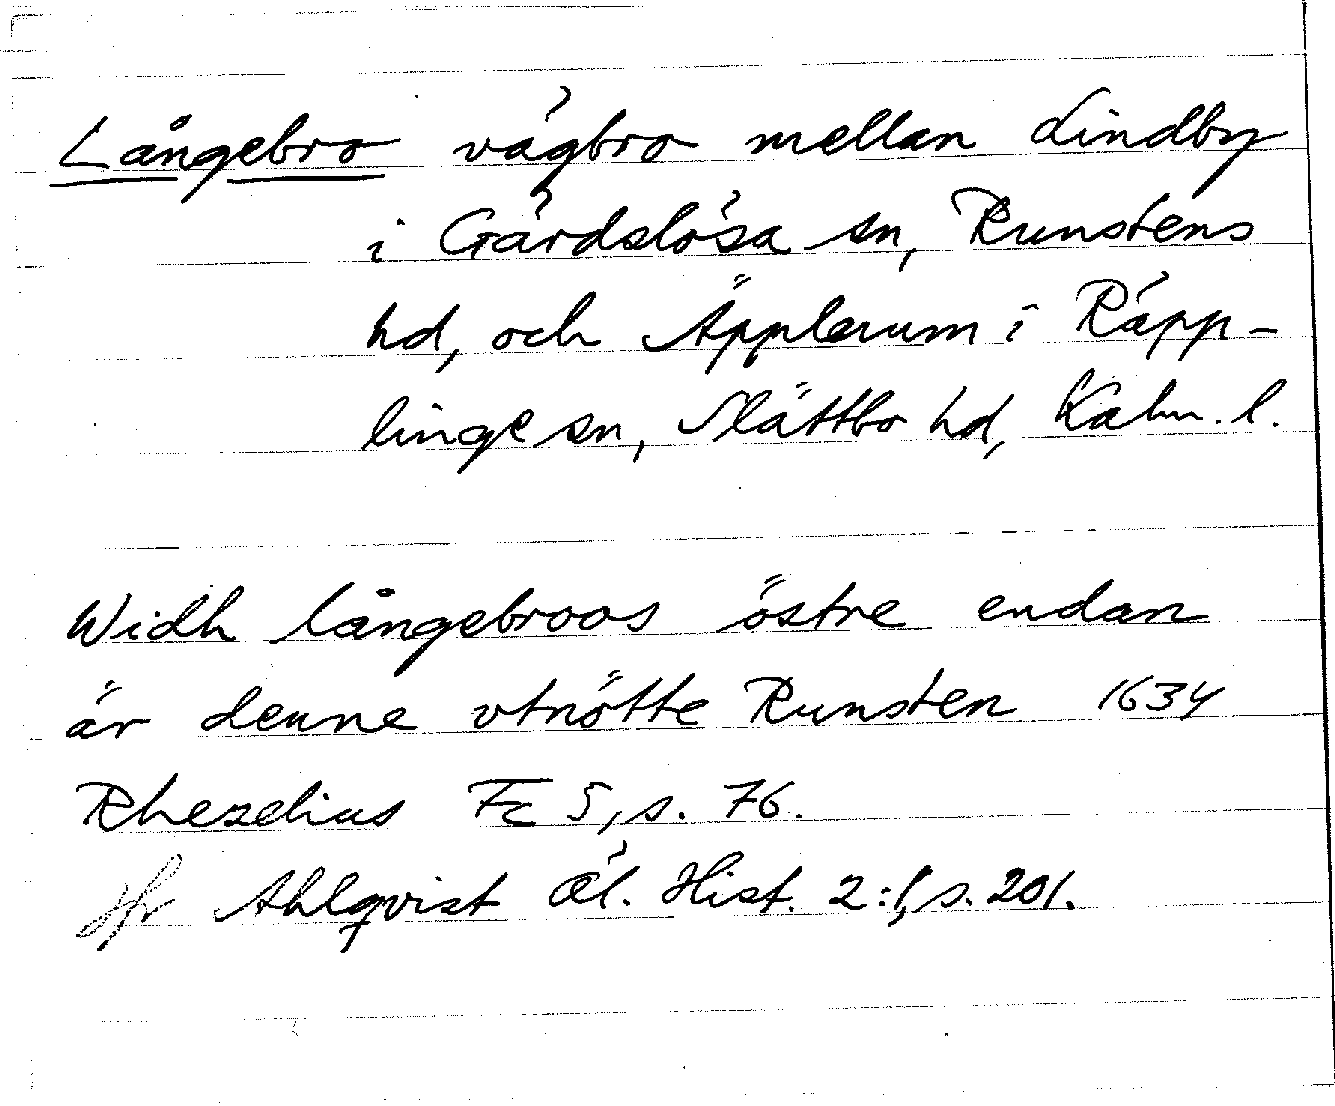 Långebro vägbro mellan Lindby
i Gärdslösa sn, Runstens
hd, och Äpplerum i Räpp-
linge sn, Slättbo hd, Kalm. l.
Widh långebroos östre endan
är denne vtnötte Runsten 1634
Rhezelius Fc 5, s. 76.
Jfr Ahlqvist Öl. Hist. 2:1, s. 201.